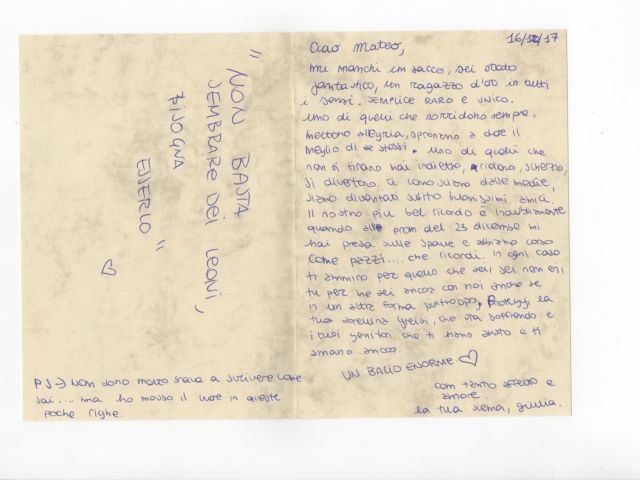 "NON BASTA
SEMBRARE DEI LEONI,
BISOGNA
ESSERLO"
PS → Non sono molto brava a scrivere come
sai.... ma ho messo il cuore in queste
poche righe.
16/12/17
Ciao Mateo,
mi manchi un sacco, sei stato
fantastico, un ragazzo d'oro in tutti
i sensi. SEMPLICE RARO E UNICO.
Uno di quelli che sorridono sempre,
mettono allegria, a dare il
meglio di se stessi. Uno di quelli che
non si tirano mai indietro, ridono, scherzano,
si divertono. Ci conoscevamo dalle medie,
siamo diventati subito buonissimi amici.
Il nostro più bel ricordo è
quando al prom del 23 dicembre mi
hai presa sulle spalle e abbiamo corso
come pazzi.... che ricordi. In ogni caso
ti ammiro per quello che sei, sei non eri
tu per me sei ancora con noi anche se
in un altra forma purtroppo, Proteggi la
tua sorellina Greisi, che sta soffrendo e
i tuoi genitori che ti hanno amato e ti
amano ancora.
UN BACIO ENORME
con tanto affetto e
amore.
la tua, giulia.